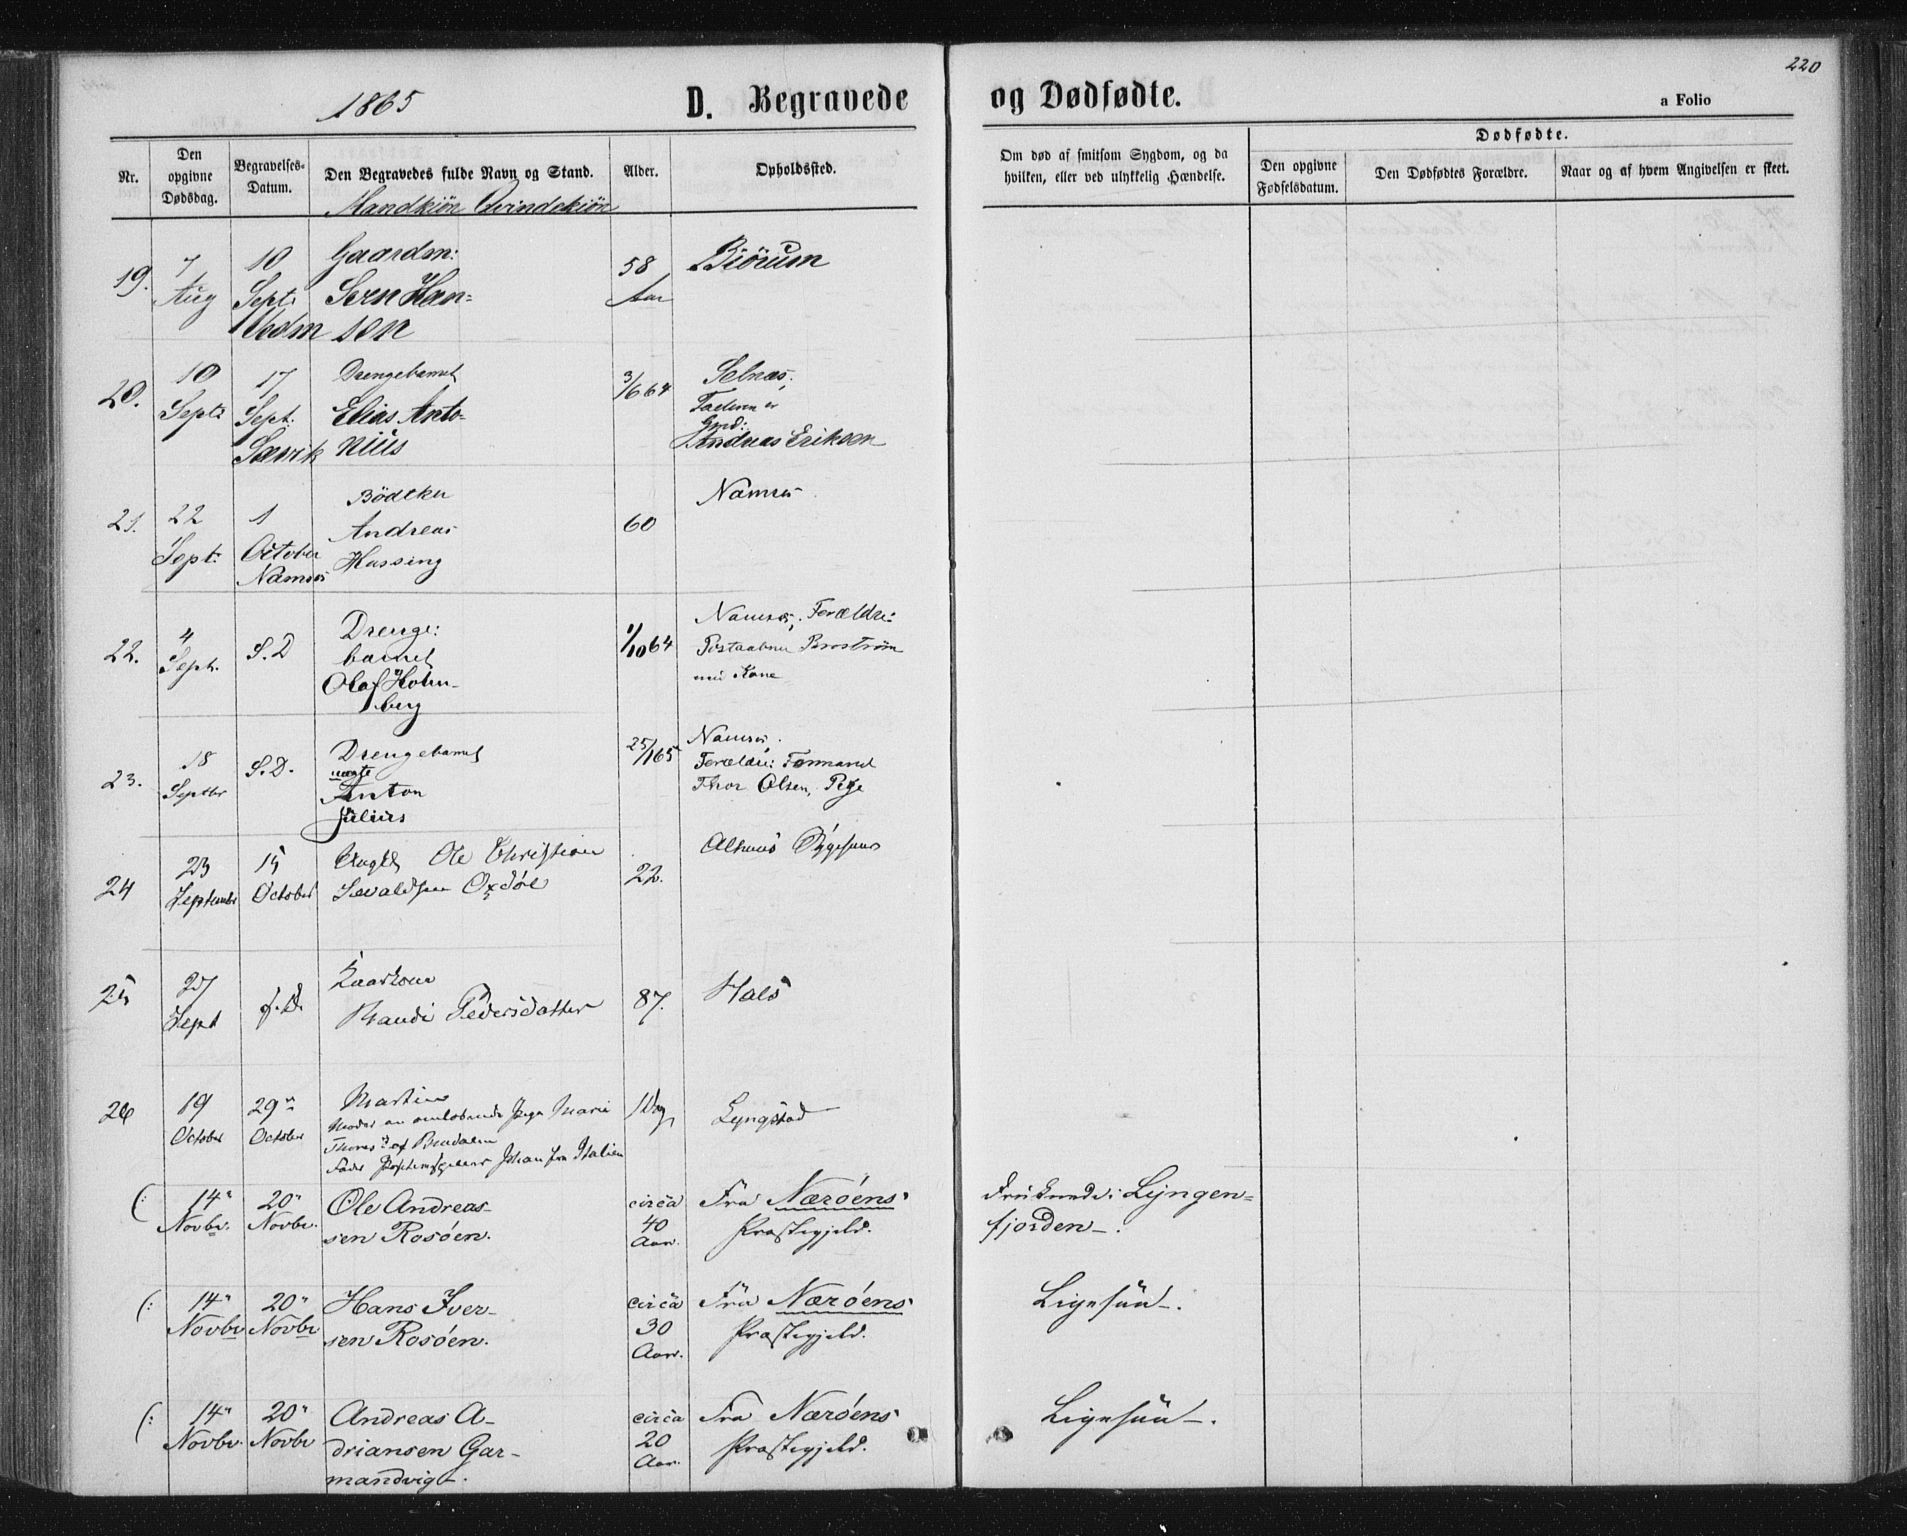 220
1865
D. Begravede og Dødfødte.
a Folio
Nr.
Den opgivne Dødsdag.
Begravelses-Datum.
Den Begravedes fulde Navn og Stand.
Alder.
Opholdssted.
Om død af smitsom Sygdom, og da hvilken, eller ved ulykkelig Hændelse.
Dødfødte.
Den opgivne Fødselsdatum.
Den Dødfødtes Forældre.
Naar og af hvem Angivelsen er skeet.
Mandkiön Qvindekiön
19. 7 10 Gaardm: 58 Biörum
Aug Sept: Sern Han- Aar
Vedm sen
20. 10 17 Drengebarnet 3/6 64 Selnæs.
Sept: Sept. Elias Anto- Faderen er
Gmd:
Sævik nius Andreas Eriksen
21. 22 1 Bödtker 60 Namsos
Sept: October Andreas
Namsos Hassing
22. 4 S.D Drenge: 1/10 64 Namsos. Forældre:
Sept. barnet Postaabner Brostrøm
Olaf Holm- Kone
berg
23. 18 S.D. Drengebarnet 25/1 65 Namsos.
Septbr uægte Forældre: Formand
Anton Thor Olsen, Pige
Julius
24 23 15 Ungk Ole Christian 22.
September October Sevaldsen Oxdøl Sygehuus
25 27 S.D. Kaarkone 87. Hals
Sept Randi Pedersdatter
26 19 29de Martin 1 Dag Lyngstad
October October Moder Marie
Fader Johan fra Italien
(: 14de 20de Ole Andreas- circa Fra Nærøens Druknede i Lyngen-
Novbr. Novbr. sen Rosöen. 40 Aar. Præstegjeld. fjorden.
(: 14de 20de Hans Iver- circa Fra Nærøens Ligesaa.
Novbr Novbr sen Rosöen. 30 Aar. Præstegjeld.
(: 14de 20de Andreas A- circa Fra Nærøens Ligesaa.
Novbr. Novbr driansen Gar- 20 Aar. Præstegjeld.
mandvig.